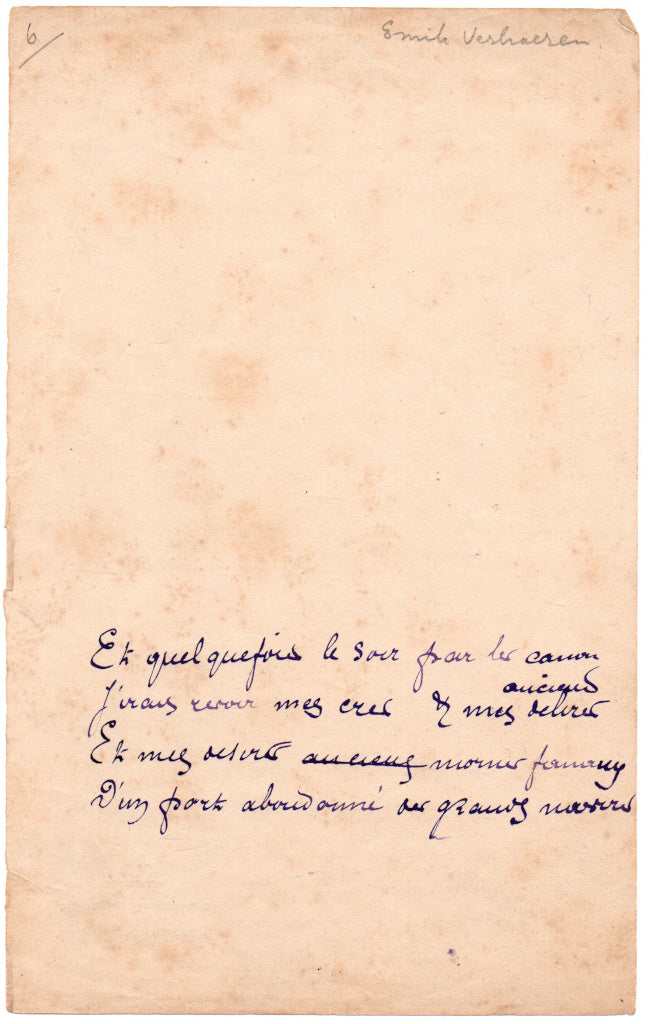 6/
Emile Verhaeren
Et quelquefois le soir par les canaux
anciens
J'irais revoir mes cris & mes délires
Et mes désirs anciens mornes fanaux
D'un port abandonné des grands navires